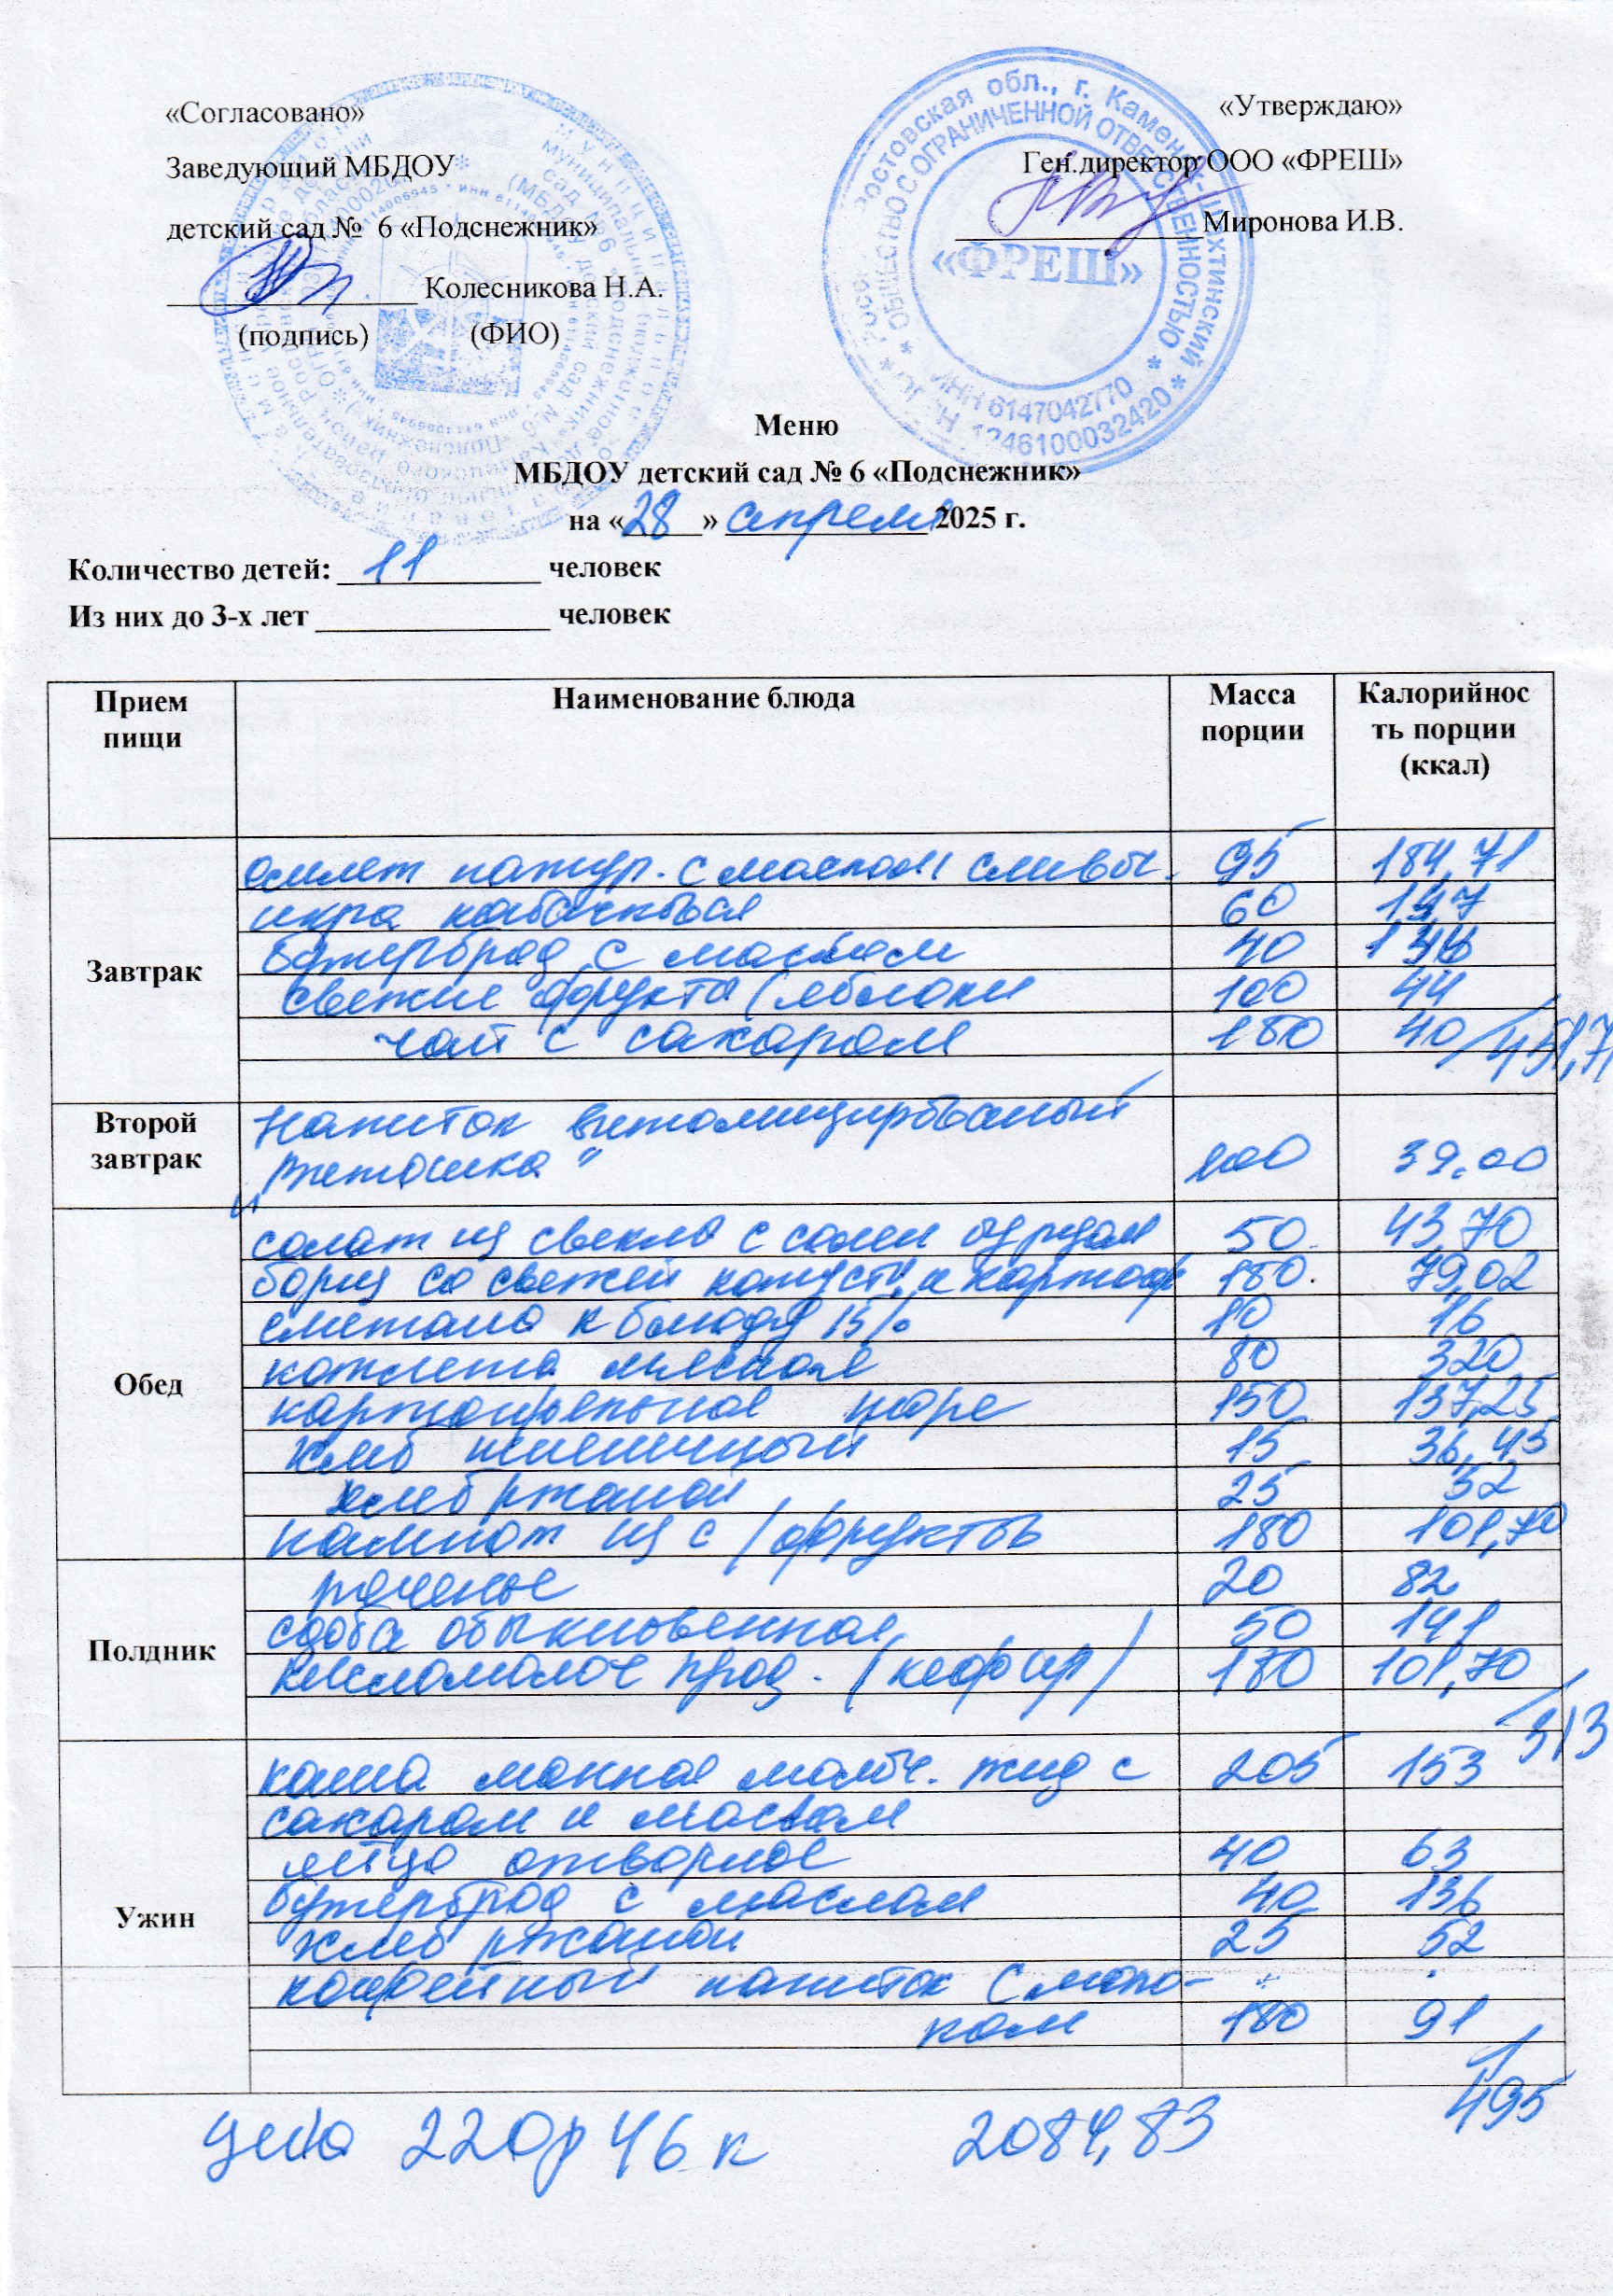 «Согласовано»
«Утверждаю»
Заведующий МБДОУ
Ген.директор ООО «ФРЕШ»
детский сад № 6 «Подснежник»
Миронова И.В.
«ФРЕШ»
Колесникова Н.А.
(подпись) (ФИО)
ИНН 6147042770
1246100032420
Меню
МБДОУ детский сад № 6 «Подснежник»
на «28» апреля 2025 г.
Количество детей: 11 человек
Из них до 3-х лет человек
Прием пищи Наименование блюда Масса порции Калорийность порции (ккал)
Завтрак
омлет натур. с маслом сливоч. 95 184,71
икра кабачковая 60
бутерброд с маслом 40
свежие фрукты (яблоки 100 44
чай с сахаром 180 40
Второй завтрак
Напиток витаминизированный
"Витошка" 200 39.00
Обед
салат из свеклы с солен огурцом 50 43,70
борщ со свежей капуст. и картоф 180. 79,02
сметана к блюду 15% 10 16
котлета мясная 80 320
картофельное пюре 150 137,25
хлеб пшеничный 15 36,45
хлеб ржаной 25 52
компот из с/фруктов 180 101,70
Полдник
печенье 20 82
сдоба обыкновенная 50 141
кисломолоч прод. (кефир) 180 101,70
Ужин
каша манная молоч. жид с 205 153
сахаром и маслом
яйцо отварное 40 63
бутерброд с маслом 40 136
хлеб ржаной 25 52
кофейный напиток с моло-
ком 180 91
495
цена 220р 46 к 2084,83